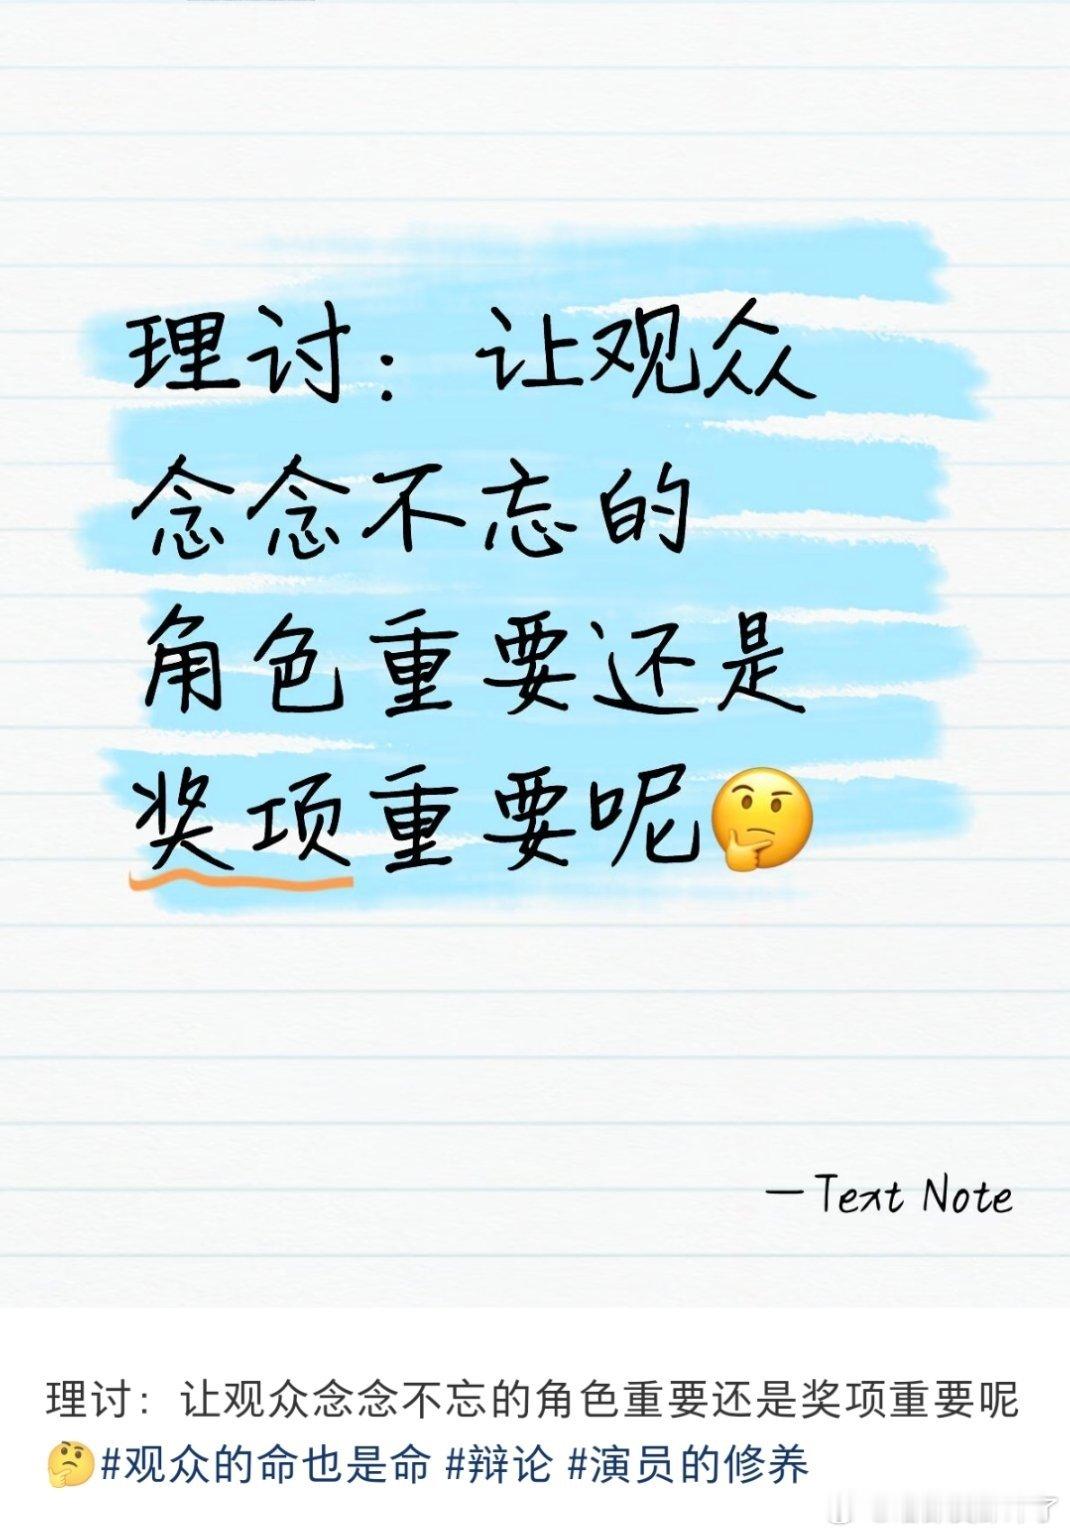 理讨：让观众
念念不忘的
角色重要还是
奖项重要呢🤔
—Text Note
理讨：让观众念念不忘的角色重要还是奖项重要呢
🤔#观众的命也是命 #辩论 #演员的修养